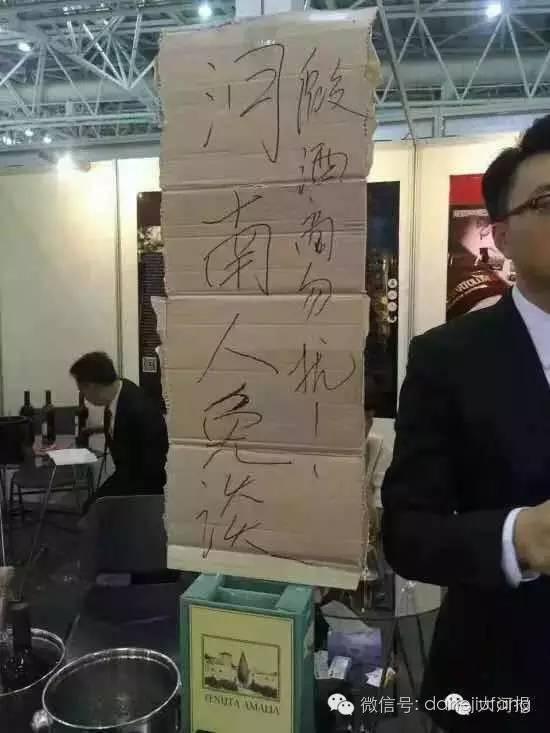 假酒商勿扰！！
河南人免谈
TENUTA AMALIA
微信号:
大河报